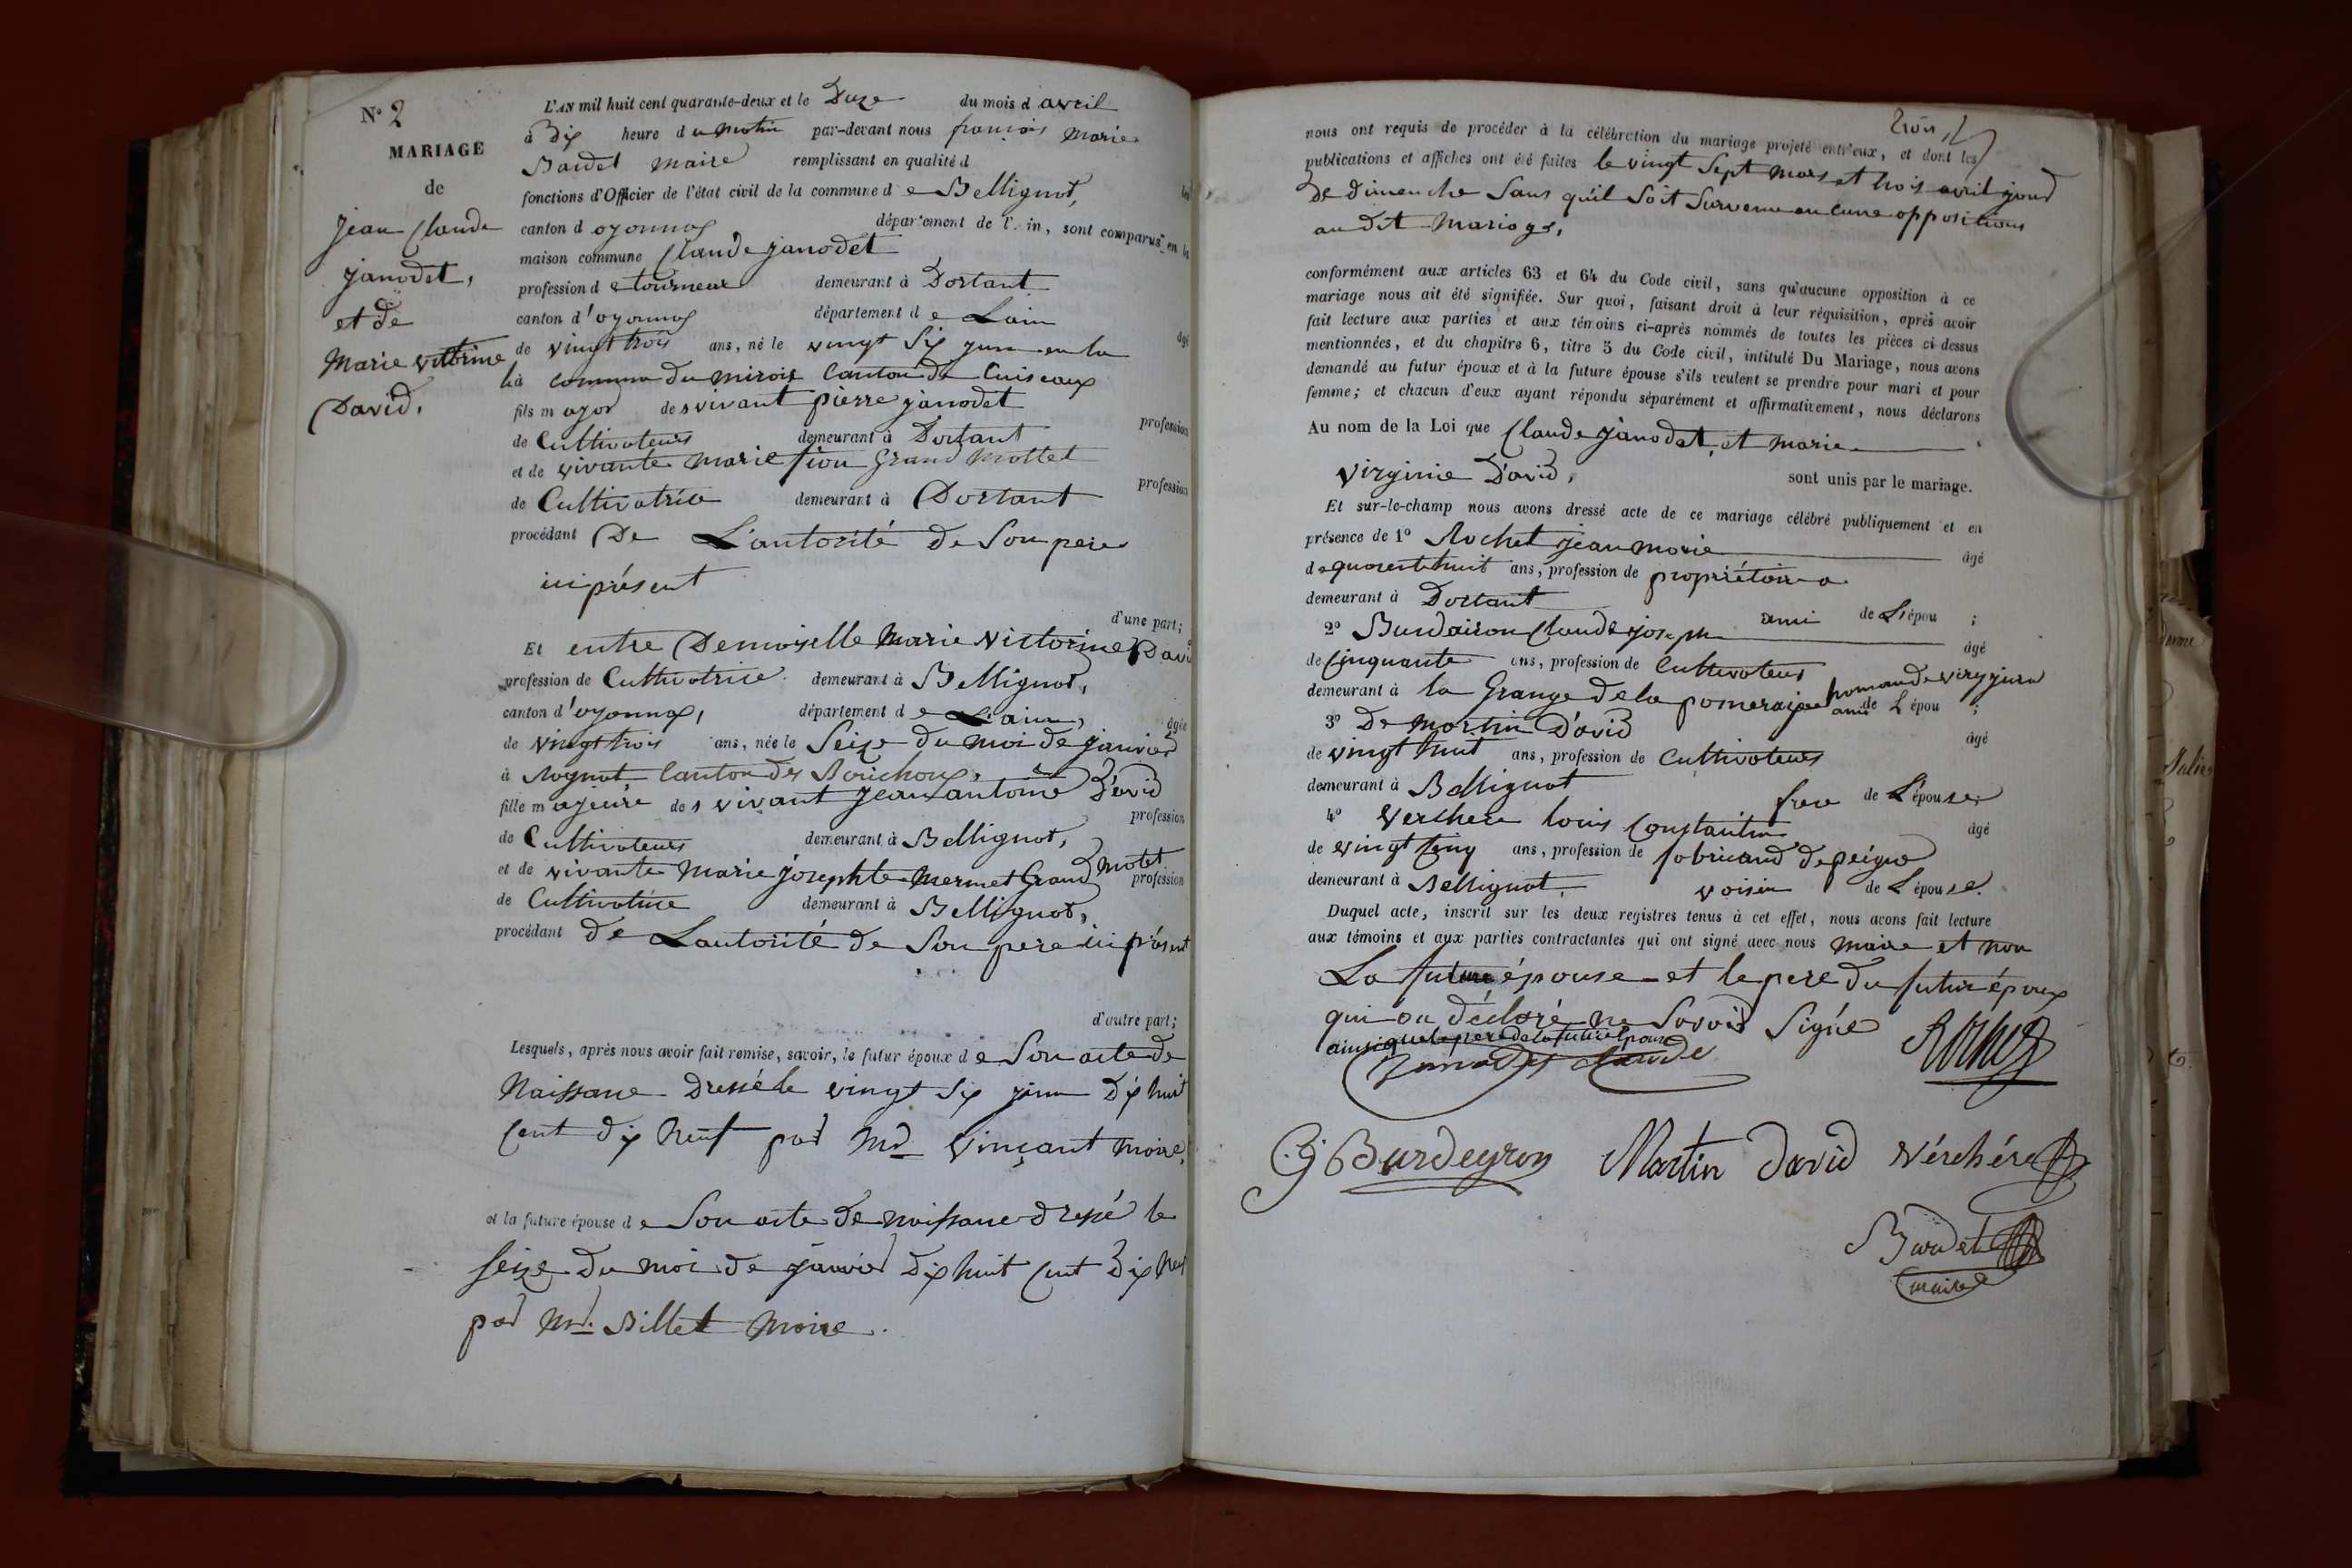 N° 2
MARIAGE
de
jean Claude
janodet,
et de
Marie victorine
David,
L'AN mil huit cent quarante-deux et le Duze du mois d avril
à Dix heure du matin par-devant nous françois Marie
Baudet maire remplissant en qualité d
fonctions d'Officier de l'état civil de la commune de Bellignat,
canton d oyonnax département de l'Ain, sont comparus en la
maison commune Claude janodet
profession de tourneur demeurant à Dortant
canton d'oyonnax département de Lain
de vingt trois ans, né le vingt six juin en la
à commune du miroir Canton de Cuiseaux
fils major des vivant pierre janodet
profession
de Cultivateurs demeurant à Dortant
et de vivante marie grand Mottet
profession
de Cultivatrice demeurant à Dortant
procédant De L'autorité de Son pere
ici présent
d'une part;
Et entre Demoiselle Marie Victorine David
profession de Cultivatrice demeurant à Bellignat,
canton d'oyonnax, département de L'ain, âgée
de vingt trois ans, née le Seize du moi de janvier
à Rognat Canton des Bouchoux,
fille majeure des vivant jean antoine David
profession
de Cultivateurs demeurant à Bellignat,
et de vivante Marie josephte Mermet Grand motet
profession
de Cultivatrice demeurant à Bellignat,
procédant de Lautorité de Son pere ici présent
d'autre part;
Lesquels, après nous avoir fait remise, savoir, le futur époux de Son acte de
Naissance Dressé le vingt Six juin Dix huit
Cent dix Neuf par Mr Vinçant Maire,
et la future épouse de Son acte de naissance dressé le
Seize du moi de janvier Dix huit Cent Dix Neuf
par Mr. Billet Maire.
nous ont requis de procéder à la célébration du mariage projeté entr'eux, et dont les
publications et affiches ont été faites le vingt Sept Mars et trois avril jour
de dimenche Sans qu'il Soit Survenue aucune oppositions
au dit Mariage,
conformément aux articles 63 et 64 du Code civil, sans qu'aucune opposition à ce
mariage nous ait été signifiée. Sur quoi, faisant droit à leur réquisition, après avoir
fait lecture aux parties et aux témoins ci-après nommés de toutes les pièces ci-dessus
mentionnées, et du chapitre 6, titre 5 du Code civil, intitulé Du Mariage, nous avons
demandé au futur époux et à la future épouse s'ils veulent se prendre pour mari et pour
femme; et chacun d'eux ayant répondu séparément et affirmativement, nous déclarons
Au nom de la Loi que Claude janodet, et marie
virginie David, sont unis par le mariage.
Et sur-le-champ nous avons dressé acte de ce mariage célébré publiquement et en
présence de 1° Rochet jean marie âgé
de quarente huit ans, profession de propriétaire
demeurant à Dortant ami de L'épou ;
2° Burdairon Claude joseph âgé
de Cinquante ans, profession de Cultivateurs
demeurant à la Grange de la pomeraie de viry jura ami de L'épou ;
3° De Martin David âgé
de vingt huit ans, profession de Cultivateurs
demeurant à Bellignat frere de L'épouse
4° Verchere louis Constantin âgé
de vingt Cinq ans, profession de fabricand de peigne
demeurant à Bellignat, voisin de L'épouse.
Duquel acte, inscrit sur les deux registres tenus à cet effet, nous avons fait lecture
aux témoins et aux parties contractantes qui ont signé avec nous maire et non
La future épouse et le pere du futur époux
qui on déclaré ne Savoir Signé
ainsi que le pere de la future Epouse
Janodet Claude Rochet
Burdeyron Martin David Vérchére
Baudet
maire